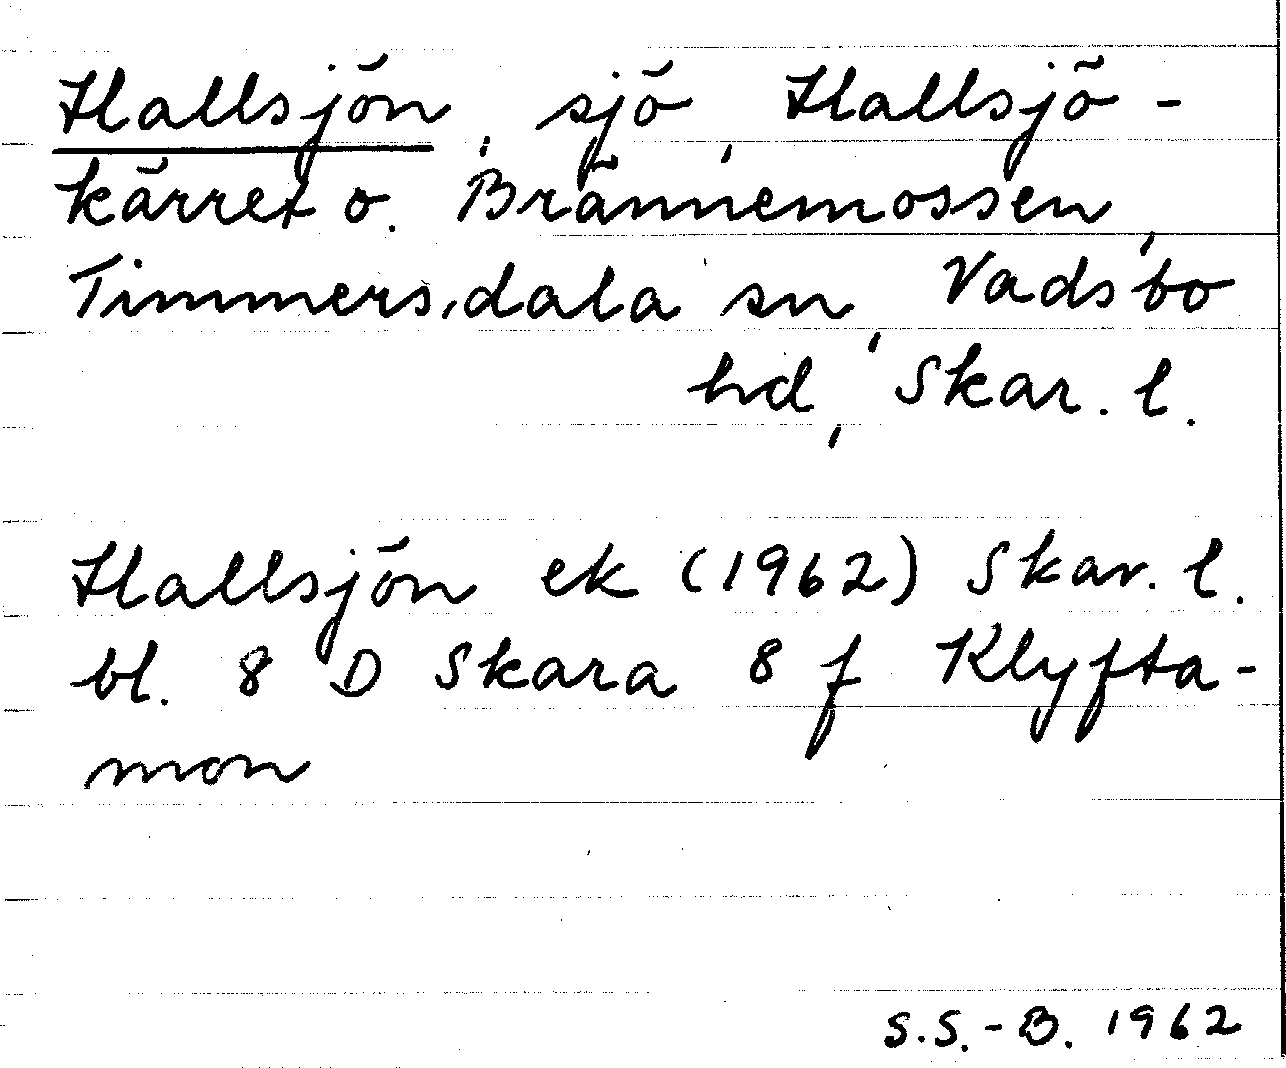 Hallsjön, sjö, Hallsjö-
kärret o. Brännemossen,
Timmersdala sn, Vadsbo
hd, Skar. l.
Hallsjön ek (1962) Skar. l.
bl. 8 D Skara 8 f Klyfta-
mon
S.S.-B. 1962